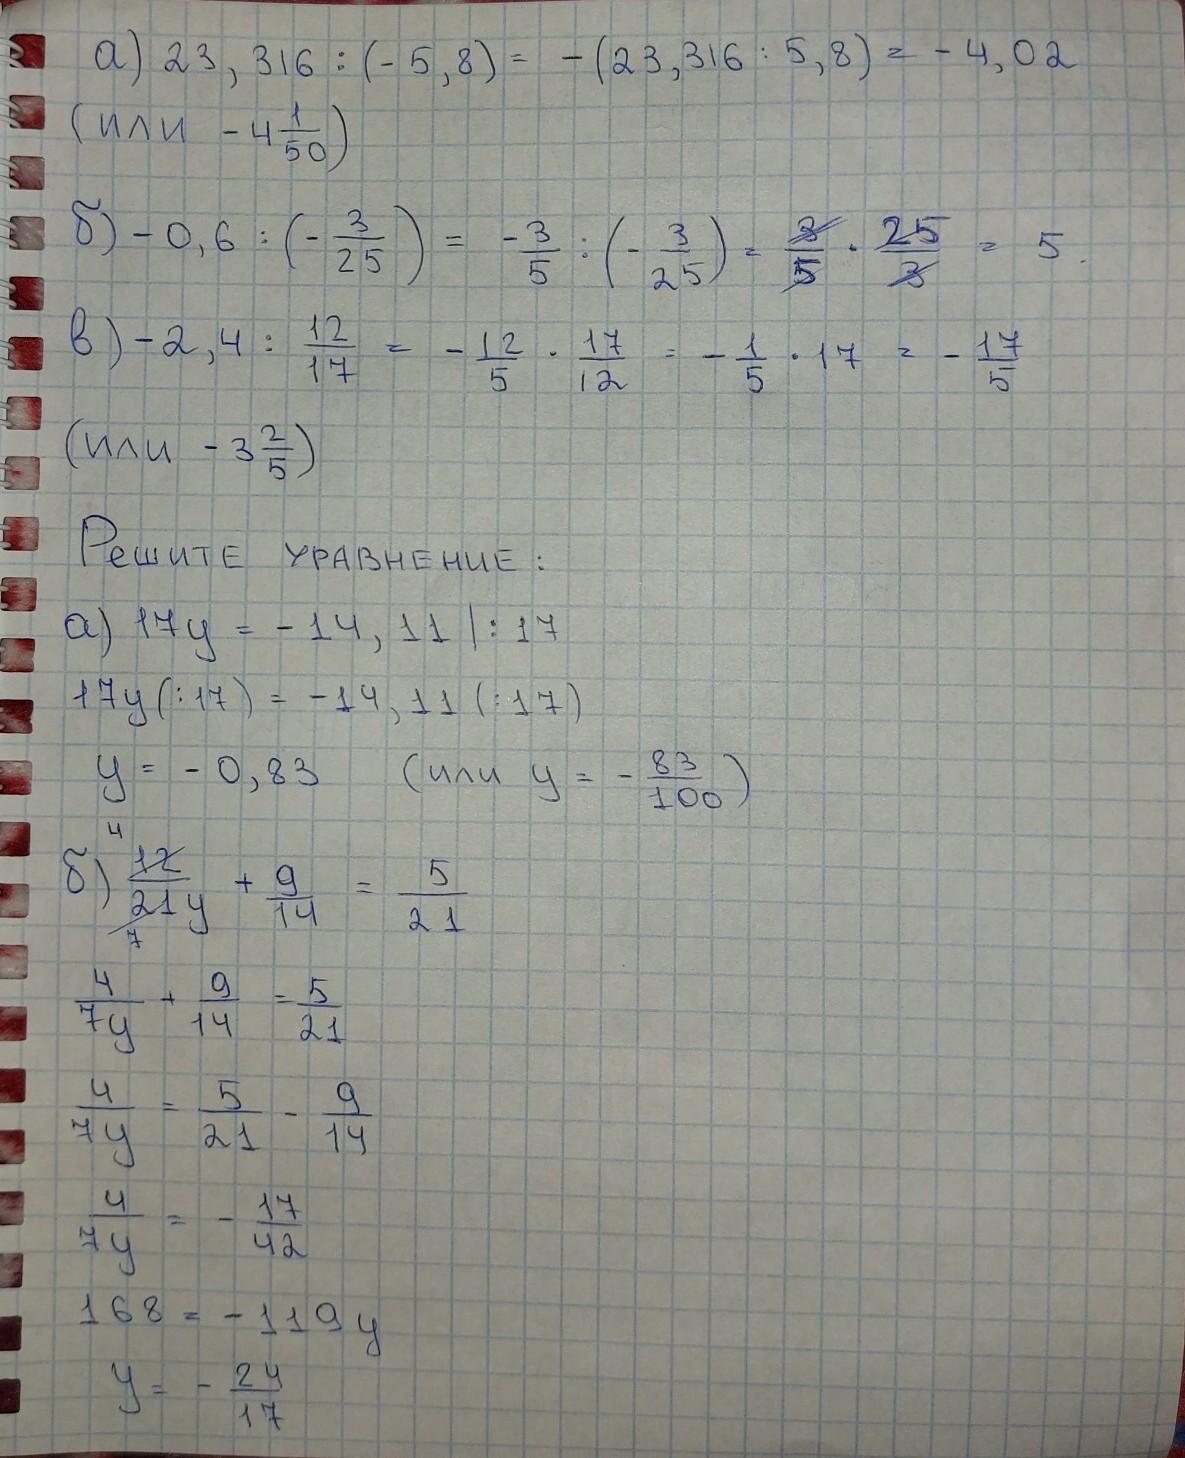 а) 23,316 : (-5,8) = -(23,316 : 5,8) = -4,02
(или -4 1/50)
б) -0,6 : (-3/25) = -3/5 : (-3/25) = 3/5 · 25/3 = 5.
в) -2,4 : 12/17 = -12/5 · 17/12 = -1/5 · 17 = -17/5
(или -3 2/5)
Решите уравнение:
а) 17y = -14,11 |:17
17y(:17) = -14,11(:17)
y = -0,83 (или y = -83/100)
4
б) 12/21y + 9/14 = 5/21
7
4/7y + 9/14 = 5/21
4/7y = 5/21 - 9/14
4/7y = -17/42
168 = -119y
y = -24/17